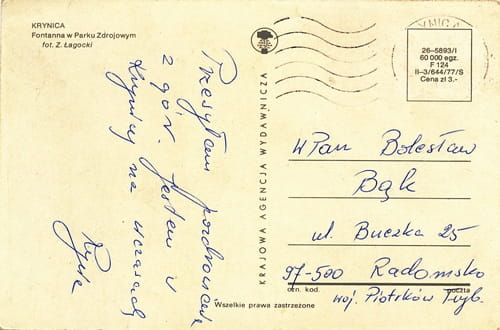 KRYNICA
Fontanna w Parku Zdrojowym
fot. Z. Łagocki
Przesyłam pozdrowienia
z gór. Jestem w
Krynicy na wczasach
KRAJOWA AGENCJA WYDAWNICZA
26-5893/I
60 000 egz.
F 124
II-3/644/77/S
Cena zł 3.-
WPan Bolesław
Bąk
ul. Buczka 25
97-500 Radomsko
ozn. kod. poczta
woj. Piotrków Tryb.
Wszelkie prawa zastrzeżone